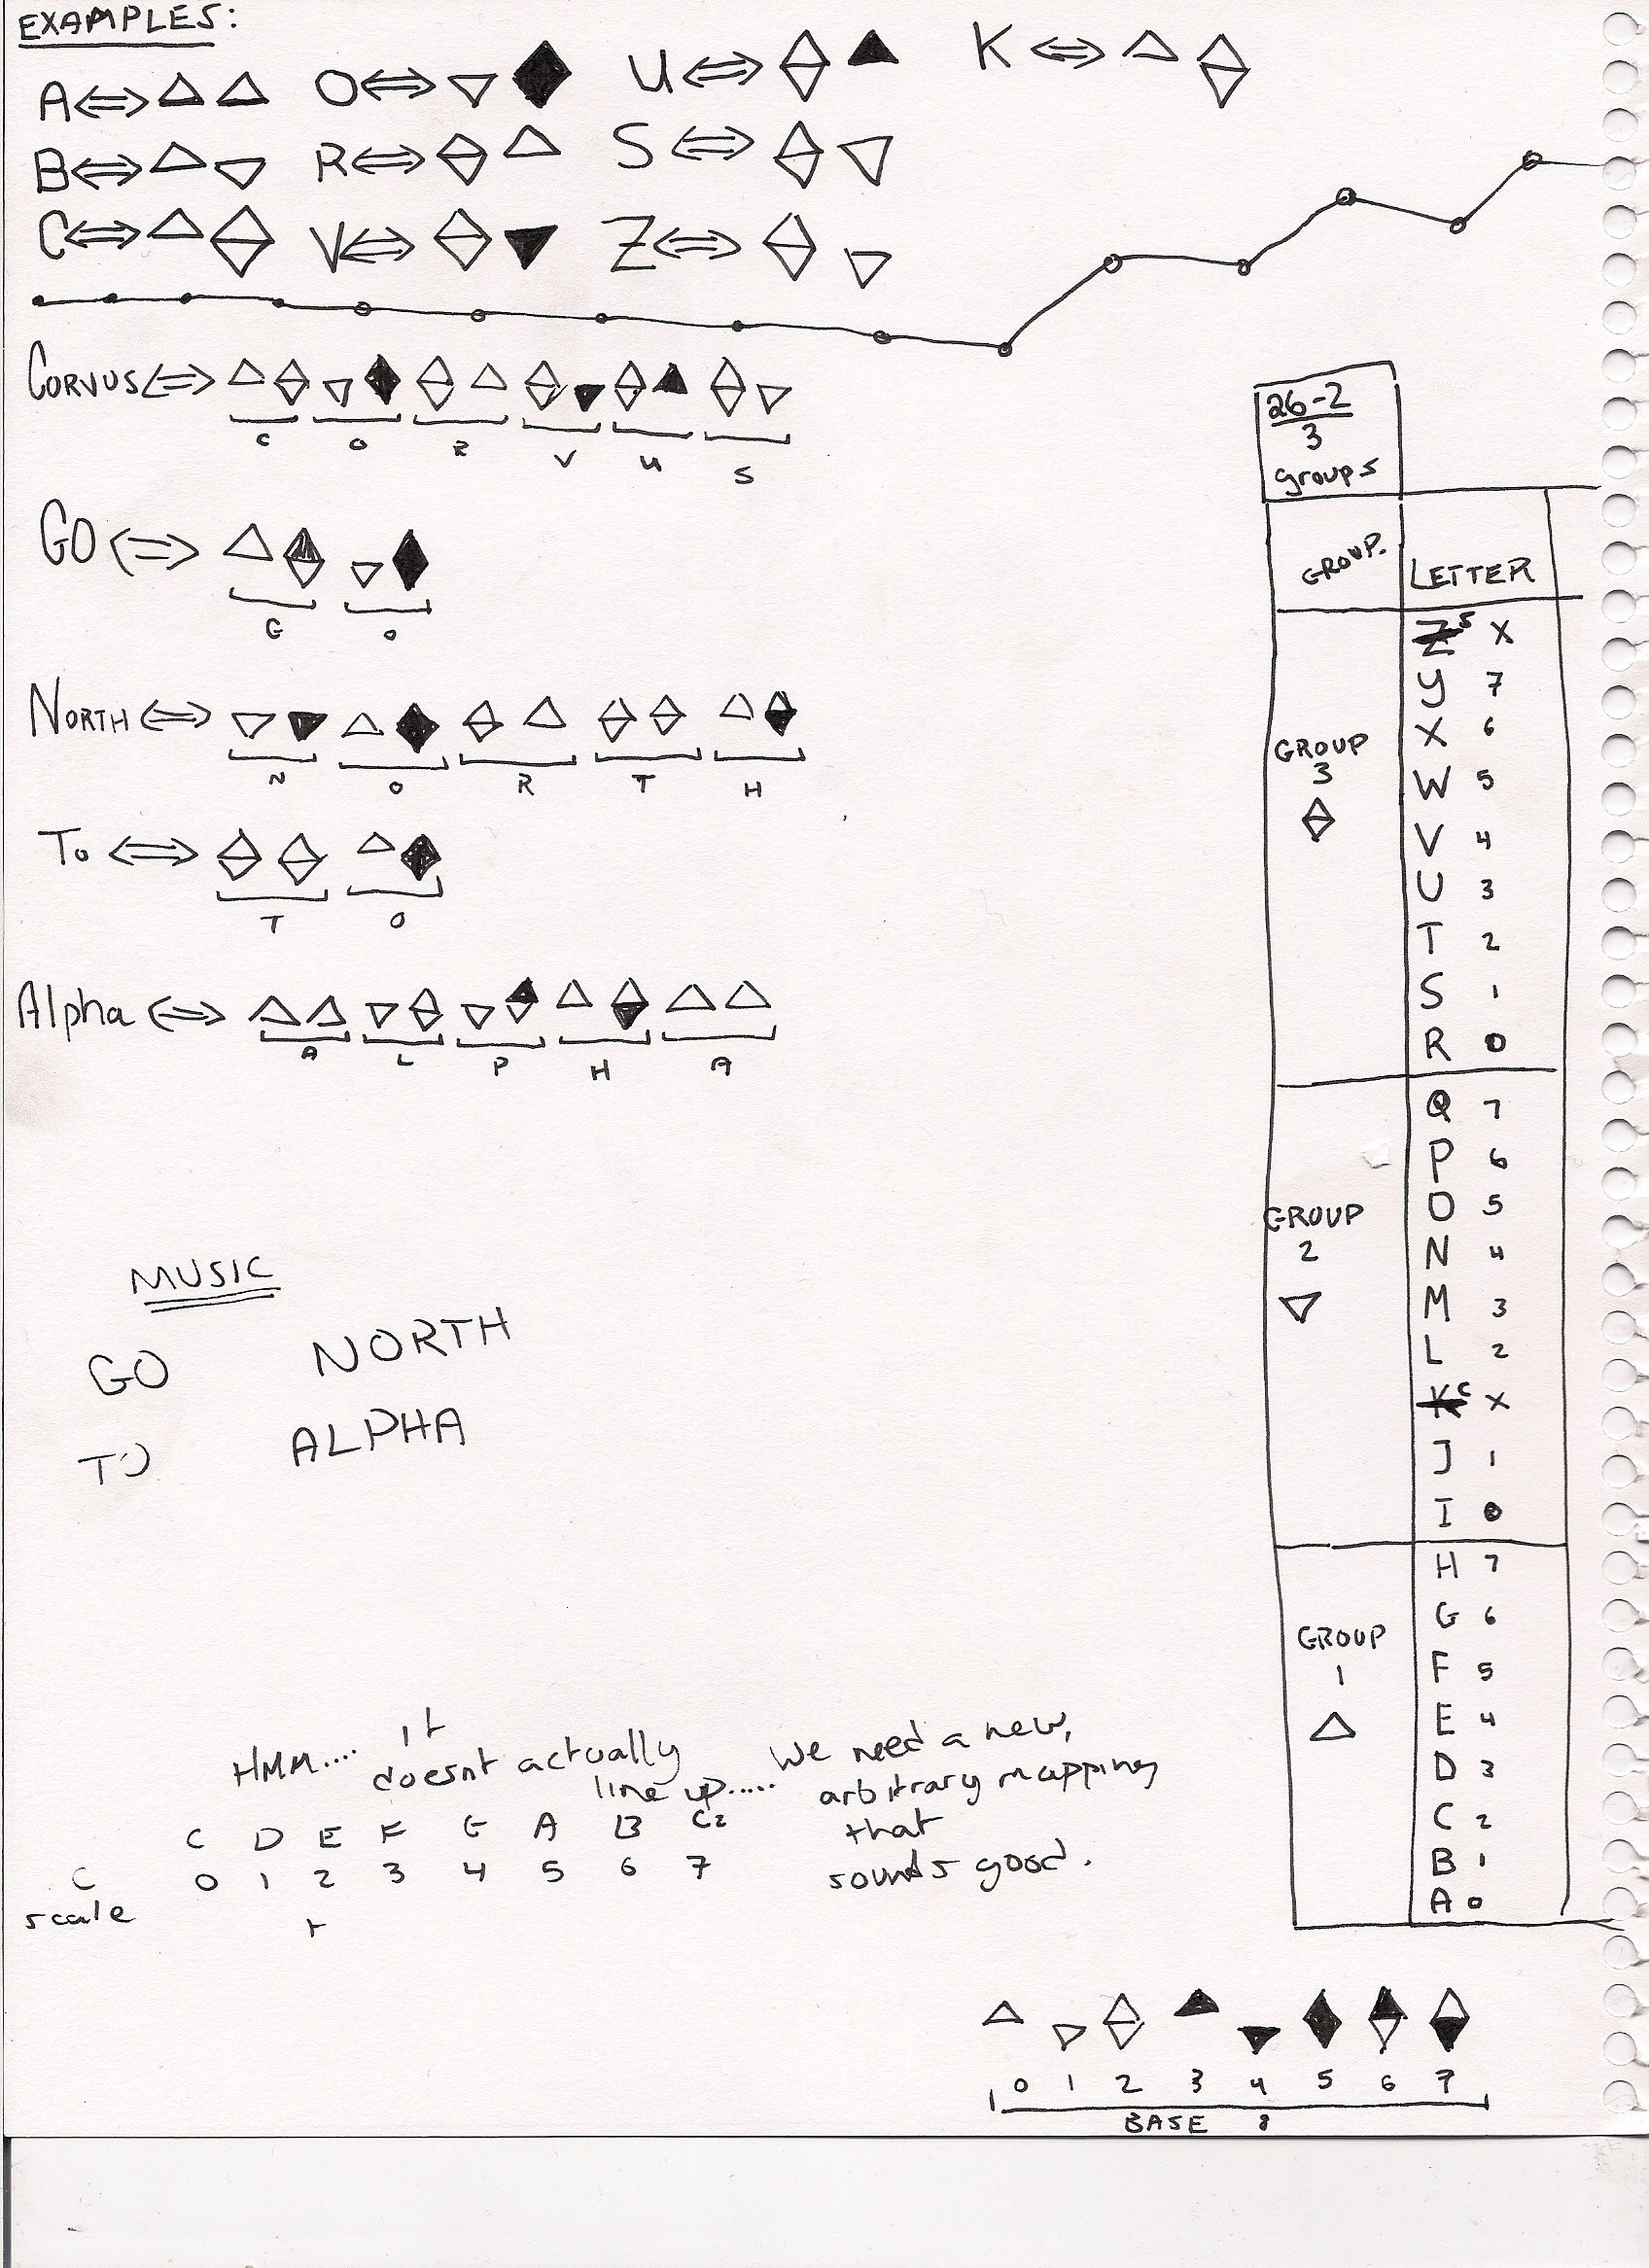 EXAMPLES:
A ⇔ △ △ O ⇔ ▽ ◆ U ⇔ ▲ K ⇔ △
B ⇔ △ ▽ R ⇔ △ S ⇔ ▽
C ⇔ △ V ⇔ ▼ Z ⇔ ▽
CORVUS ⇔
C O R V U S
GO ⇔
G O
NORTH ⇔
N O R T H
To ⇔
T O
Alpha ⇔
A L P H A
MUSIC
GO NORTH
TO ALPHA
HMM.... it
doesnt actually
line up.....
We need a new,
arbitrary mapping
that
sounds good.
C D E F G A B C2
C 0 1 2 3 4 5 6 7
scale
26-2
3
groups
GROUP. LETTER
GROUP
3
Z S X
Y 7
X 6
W 5
V 4
U 3
T 2
S 1
R 0
GROUP
2
Q 7
P 6
O 5
N 4
M 3
L 2
K C X
J 1
I 0
GROUP
1
H 7
G 6
F 5
E 4
D 3
C 2
B 1
A 0
0 1 2 3 4 5 6 7
BASE 8